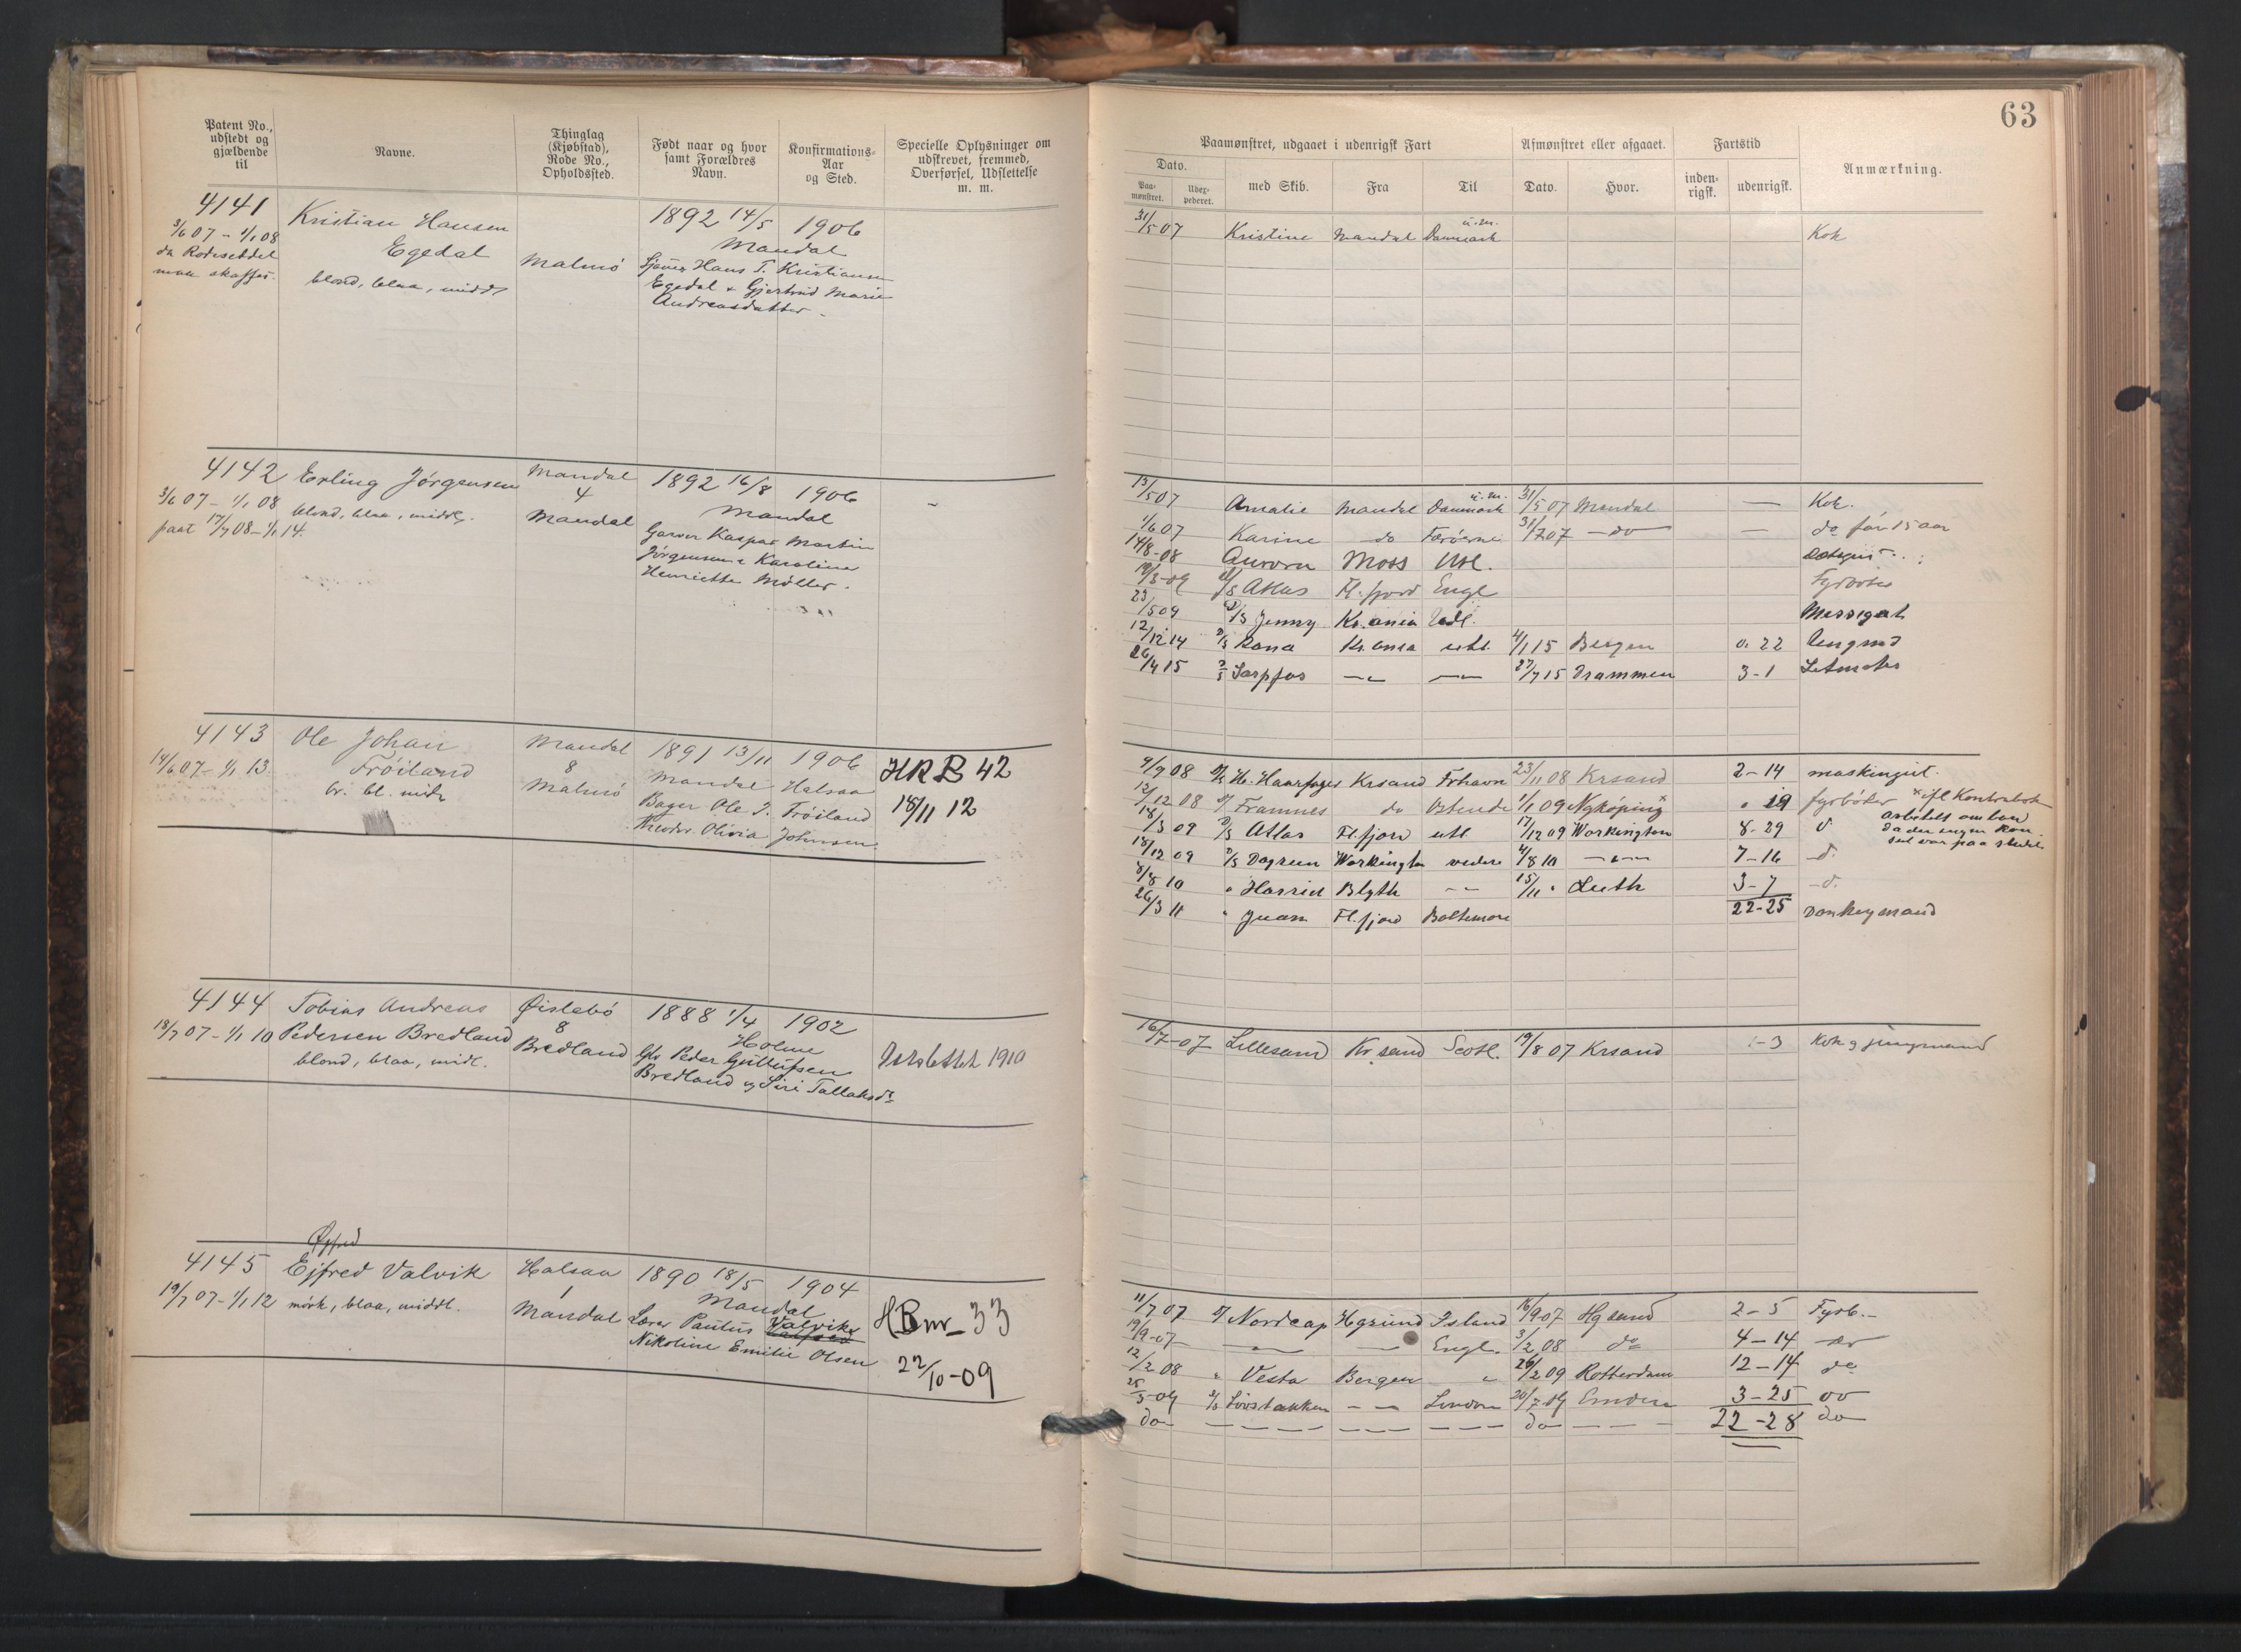 63
Patent No., udstedt og gjældende til
Navne.
Thinglag (Kjøbstad), Rode No., Opholdssted.
Født naar og hvor samt Forældres Navn.
Konfirmations-Aar og Sted.
Specielle Oplysninger om udskrevet, fremmed, Overførsel, Udslettelse m. m.
Paamønstret, udgaaet i udenrigsk Fart
Afmønstret eller afgaaet.
Fartstid
Anmærkning.
Dato.
Paa-mønstret.
Udex-pederet.
med Skib.
Fra
Til
Dato.
Hvor.
inden-rigsk.
udenrigsk.
4141 Kristian Hansen 1892 14/5 1906
3/6 07 - 1/1 08 Egedal Malmö Mandal
da Rodeseddel blond, blaa, midd Sjömr Hans T. Kristiansen
maa skaffes. Egedal & Gjertrud Marie
Andreasdatter
31/5 07 Kristine Mandal Danmark u.m. Kok
4142 Erling Jørgensen Mandal 1892 16/8 1906 -
3/6 07 - 1/1 08 blond, blaa, middl. 4 Mandal
paat 17/7 08 - 1/1 14. Mandal Garver Kaspar Martin
Jørgensen & Karoline
Henriette Møller.
13/5 07 Amalie Mandal Danmark u.m. 31/5 07 Mandal — Kok.
1/6 07 Karine do Færöerne 31/7 07 - do — do før 15 aar
14/8-08 Aurora Moss Utl.
18/3-09 D/S Atlas Fl.fjord Engl Fyrböter
23/5 09 D/S Jenny Kr.ania Utl. Messegut
12/12 14 D/S Rana Kr.ania utl. 4/1 15 Bergen 0. 22
26/4 15 D/S Sarpfos -"- -"- 27/7 15 Drammen 3-1 Letmatr
4143 Ole Johan Mandal 1891 13/11 1906 HRB 42
14/6 07 - 1/1 13. Tröiland 8 Mandal Halsaa 18/11 12
br. bl. midr Malmö Bager Ole T. Tröiland
Theodor. Olivia Johnsen
9/9 08 D/S H. Haarfager Krsand Frhavn 23/11 08 Krsand 2-14 maskingut.
12/12 08 D/ Framnes do Ostende 1/1 09 Nyköping x " 19 fyrböter x ifl Kontrabok
18/3 09 D/S Atlas Fl.fjord utl 17/12 09 Workington 8-29 d arbeidet ombord
da der ingen kon-
sul var paa stedet
18/12 09 D/S Dagrun Workingto videre 4/8 10 -"- 7-16 d.
8/8 10 " Harriet Blyth -"- 15/11 " Leith 3-7 d.
26/3 11 " Juam Fl.fjord Baltimore 22-25 Donkeymand
4144 Tobias Andreas Øislebö 1888 1/4 1902
18/7 07 - 1/1 10 Pedersen Bredland 8 Holme
blond, blaa, midl. Bredland Gb Peder Gullufsen Udslettet 1910
Bredland og Siri Tallaksdr
16/7-07 Lillesand Kr.sand Scotl. 19/8 07 Krsand 1-3 Kok og jungmand
4145 Ejfred Valvik Halsaa 1890 18/5 1904
19/7 07 - 1/1 12 mörk, blaa, middl. 1 Mandal HB nr - 33
Mandal Lærer Paulus Valvik
Nikoline Emilie Olsen 22/10-09
11/7 07 D/ Nordcap Hgsund Island 16/9 07 Hgsund 2-5 Fyrb.-
19/9-07 — — Engl. 3/2 08 do 4-14 do
12/2 08 " Vesta Bergen " 26/2 09 Rotterdam 12-14 do
25/3-09 D/S Lövstakken -"- London 20/7 09 Emden 3-25 do
do — — — do — 22-28 do